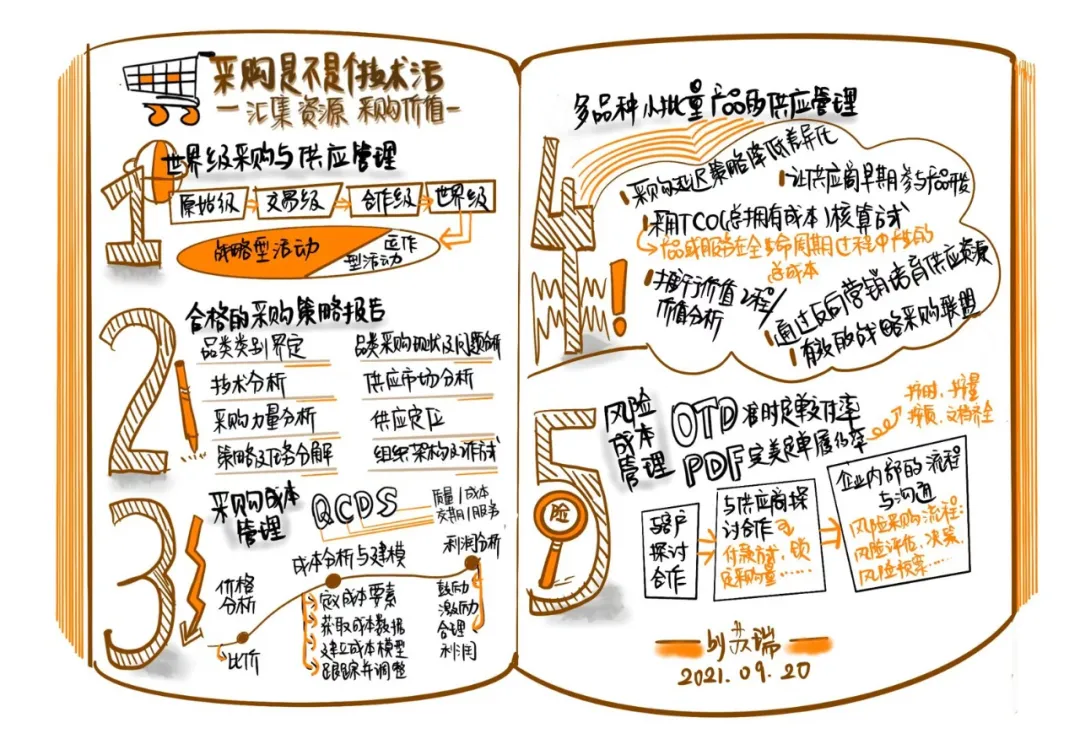 采购是不是个技术活
—汇集资源 采购价值—
1
世界级采购与供应管理
原始级
交易级
合作级
世界级
战略型活动
运作
型活动
2
合格的采购策略报告
品类类别界定
品类采购现状及问题分析
技术分析
供应市场分析
采购力量分析
供应定位
策略及任务分解
组织架构及作试
3
采购成本
管理
QCDS
质量/成本
交期/服务
价格
分析
比价
成本分析与建模
获取成本数据
建立成本模型
跟踪并调整
利润分析
鼓励
激励
合理
利润
4
多品种小批量产品的供应管理
采购延迟策略降低差异化
让供应商早期参与产品开发
采用TCO(总拥有成本)核算方式
产品或服务在全生命周期过程中产生的
总成本
推行价值工程/
价值分析
通过反向营销培育供应资源
有效的战略采购联盟
5
险
风险
成本
管理
OTD 准时定单交付率
PDF 完美定单履约率
按时、按量
按质、文档齐全
与客户
探讨
合作
与供应商探
讨合作
付款方式,锁
定采购量……
企业内部的流程
与沟通
风险采购流程:
风险评估、决策、
风险预案……
by 苏瑞
2021.09.20